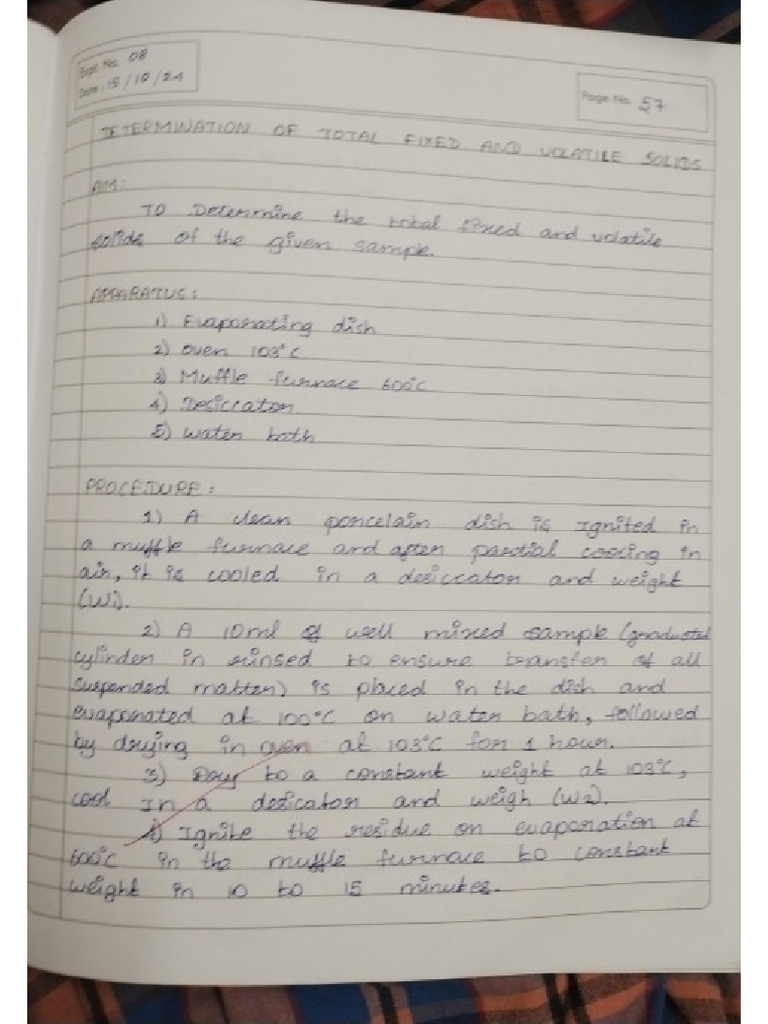 Expt. No. 08
Date: 15/10/24
Page No. 57
DETERMINATION OF TOTAL FIXED AND VOLATILE SOLIDS
AIM:
TO Determine the total fixed and volatile
solids of the given sample.
APPARATUS:
1) Evaporating dish
2) oven 103°C
3) Muffle furnace 600°C
4) Desiccator
5) water bath
PROCEDURE:
1) A clean porcelain dish is Ignited in
a muffle furnace and after partial cooling in
air, it is cooled in a desiccator and weight
(W1).
2) A 10ml of well mixed sample (graduated
cylinder in rinsed to ensure transfer of all
suspended matter) is placed in the dish and
evaporated at 100°C on water bath, followed
by drying in oven at 103°C for 1 hour.
3) Dry to a constant weight at 103°C,
cool In a desicator and weigh (W2).
4) Ignite the residue on evaporation at
600°C in the muffle furnace to constant
weight in 10 to 15 minutes.